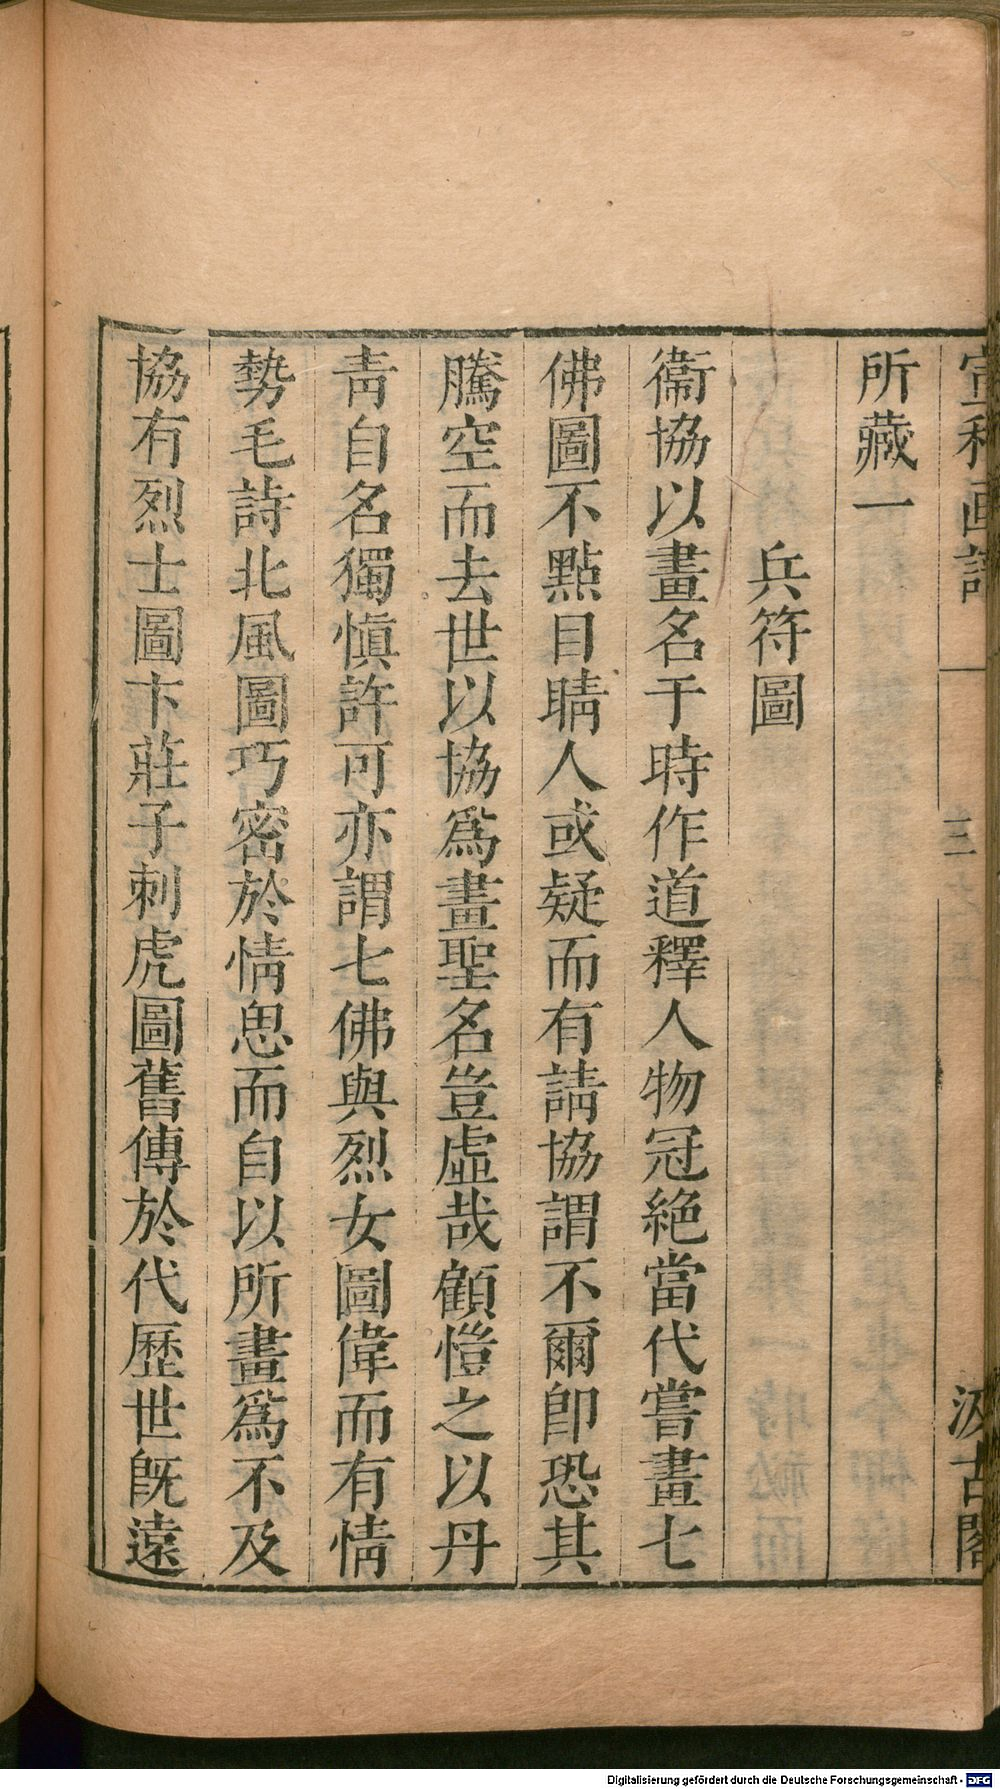 宣和画譜 一 三 汲古閣
所藏一
兵符圖
衞協以畫名于時作道釋人物冠絕當代嘗畫七
佛圖不點目睛人或疑而有請協謂不爾即恐其
騰空而去世以協爲畫聖名豈虛哉顧愷之以丹
青自名獨愼許可亦謂七佛與烈女圖偉而有情
勢毛詩北風圖巧密於情思而自以所畫爲不及
協有烈士圖卞莊子刺虎圖舊傳於代歷世旣遠
Digitalisierung gefördert durch die Deutsche Forschungsgemeinschaft - DFG